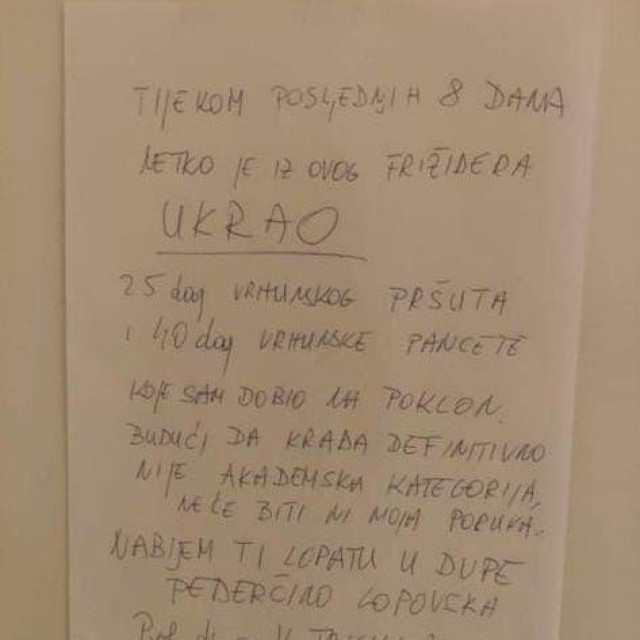 TIJEKOM POSLJEDNJIH 8 DANA
NETKO JE IZ OVOG FRIŽIDERA
UKRAO
25 dag VRHUNSKOG PRŠUTA
i 40 dag VRHUNSKE PANCETE
KOJE SAM DOBIO NA POKLON.
BUDUĆI DA KRAĐA DEFINITIVNO
NIJE AKADEMSKA KATEGORIJA,
NEĆE BITI NI MOJA PORUKA.
NABIJEM TI LOPATU U DUPE
PEDERČINO LOPOVSKA
Prof.